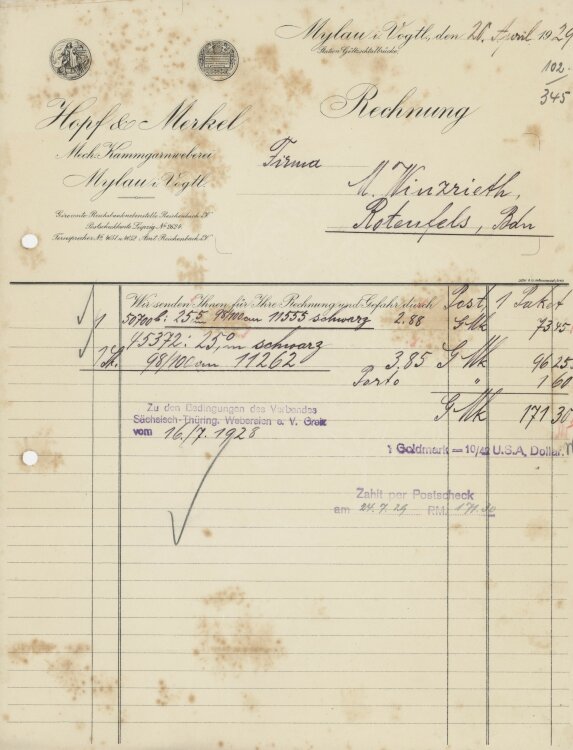 Mylau i. Vogtl., den 26. April 1929
Station Göltzschtalbrücke.
102.
345
Hopf & Merkel
Mech. Kammgarnweberei
Mylau i. Vogtl.
Rechnung
Firma
M. Winzrieth,
Rotenfels, Bdn
Giro-Konto Reichsbanknebenstelle Reichenbach i.V.
Postscheckkonto Leipzig No 2624
Fernsprecher No 4051 u. 4052 Amt Reichenbach i.V.
Wir senden Ihnen für Ihre Rechnung und Gefahr durch Post 1 Paket
1 50700b: 25 5 98/100 cm 11555 schwarz 2.88 GMk 73 45
45372: 25 0 m schwarz
1 St. 98/100 cm 11262 3.85 GMk 96 25
Porto " 1 60
GMk 171 30
Zu den Bedingungen des Verbandes
Sächsisch-Thüring. Webereien e. V. Greiz
vom 16./7. 1928
1 Goldmark = 10/42 U.S.A. Dollar.
Zahlt per Postscheck
am 24.7.29 RM. 171.30